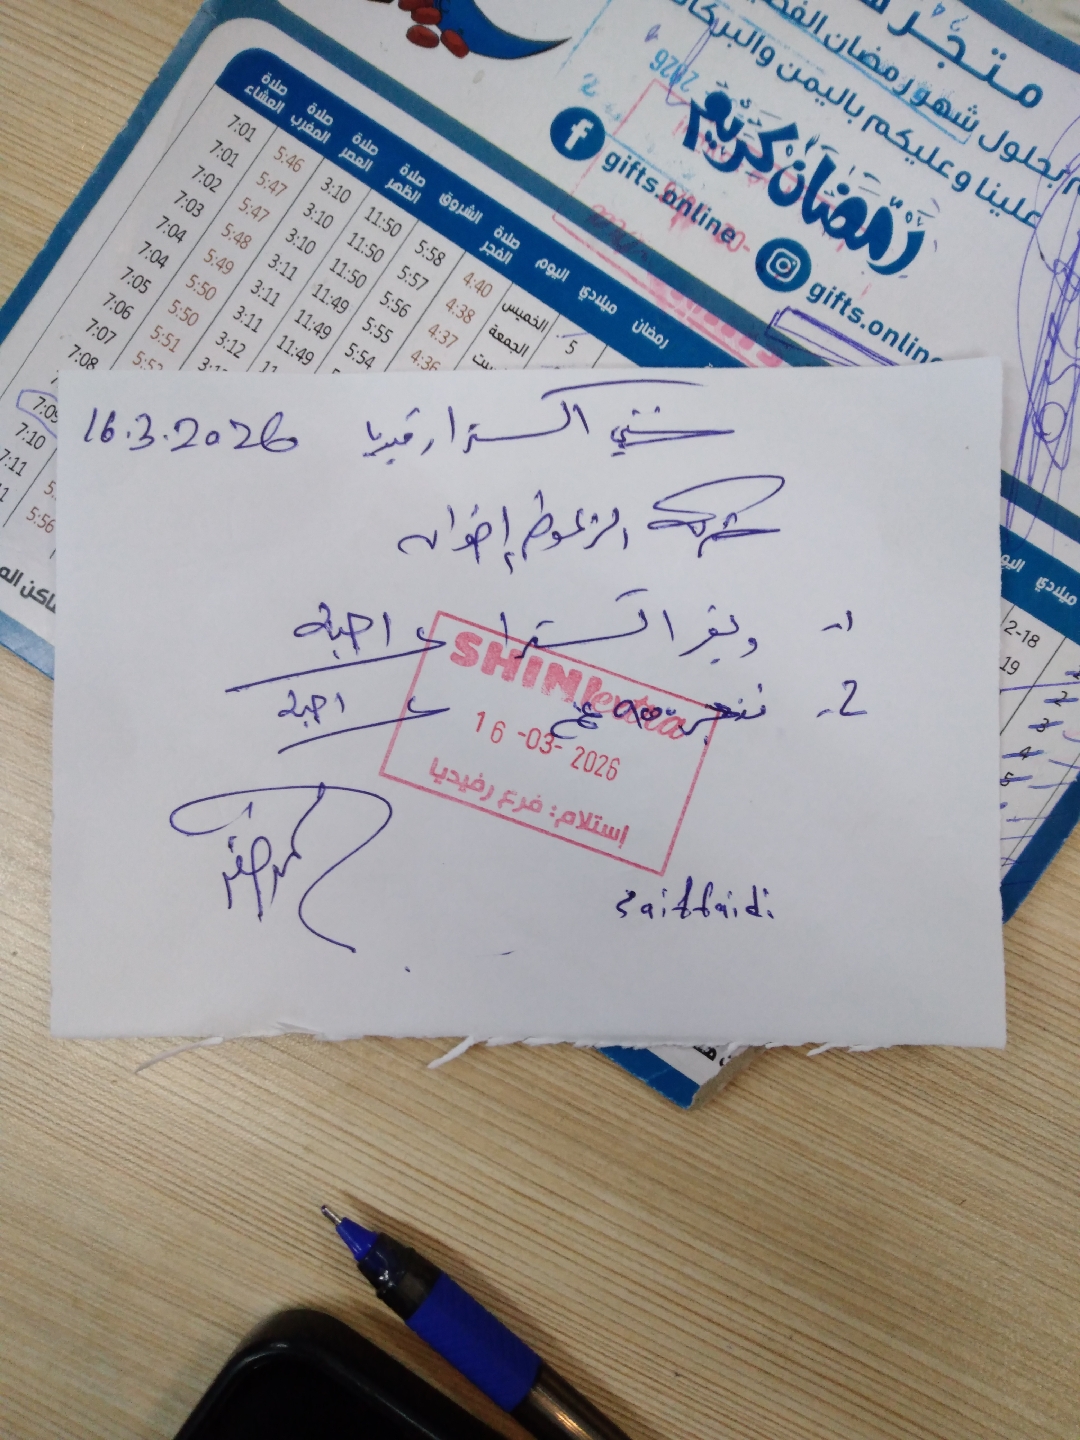 متجر
بحلول شهر رمضان
علينا وعليكم باليمن والبركات
2026
رمضان كريم
gifts.online
gifts.online
رمضان ميلادي اليوم صلاة الفجر الشروق صلاة الظهر صلاة العصر صلاة المغرب صلاة العشاء
5 الخميس 4:40 5:58 11:50 3:10 5:46 7:01
الجمعة 4:38 5:57 11:50 3:10 5:47 7:01
4:37 5:56 11:50 3:10 5:47 7:02
4:36 5:55 11:49 3:11 5:48 7:03
5:54 11:49 3:11 5:49 7:04
11:49 3:11 5:50 7:04
3:12 5:50 7:05
5:51 7:06
7:07
7:08
7:09
7:10
7:11
5:56
ميلادي
2-18
19
2
3
4
5
شني اكسترا رفيديا 16.3.2026
شركة الزعموط إخوان
1- ويفر اكسترا ع احبة
2-
ع احبة
SHINI extra
16-03-2026
إستلام: فرع رفيديا
saif faidi